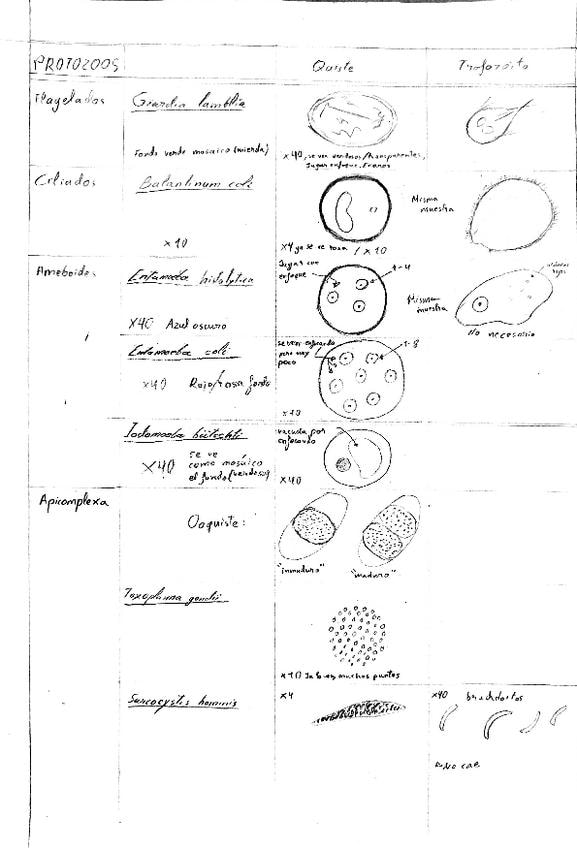 PROTOZOOS
Quiste
Trofozoito
Flagelados
Giardia lamblia
Fondo verde mosaico (mierda)
x40, se ven verdosos/transparentes,
Jugar enfoque
Ciliados
Balantinum coli
x10
x4 ya se ve rosa / x10
Misma
muestra
Ameboides
Entamoeba histolytica
x40 Azul oscuro
Jugar con
enfoque
1-4
Misma
muestra
No necesario
Entamoeba coli
x40 Rojo/rosa fondo
se ven
pero muy
poco
1-8
x40
Iodamoeba bütschlii
x40
se ve
como mosaico
el fondo (verdoso)
vacuola por
enfocando
x40
Apicomplexa
Ooquiste:
"inmaduro"
"maduro"
Toxoplasma gondii
x40 Se ven muchos puntos
Sarcocystis hominis
x4
x40 bradizoitos
No cae